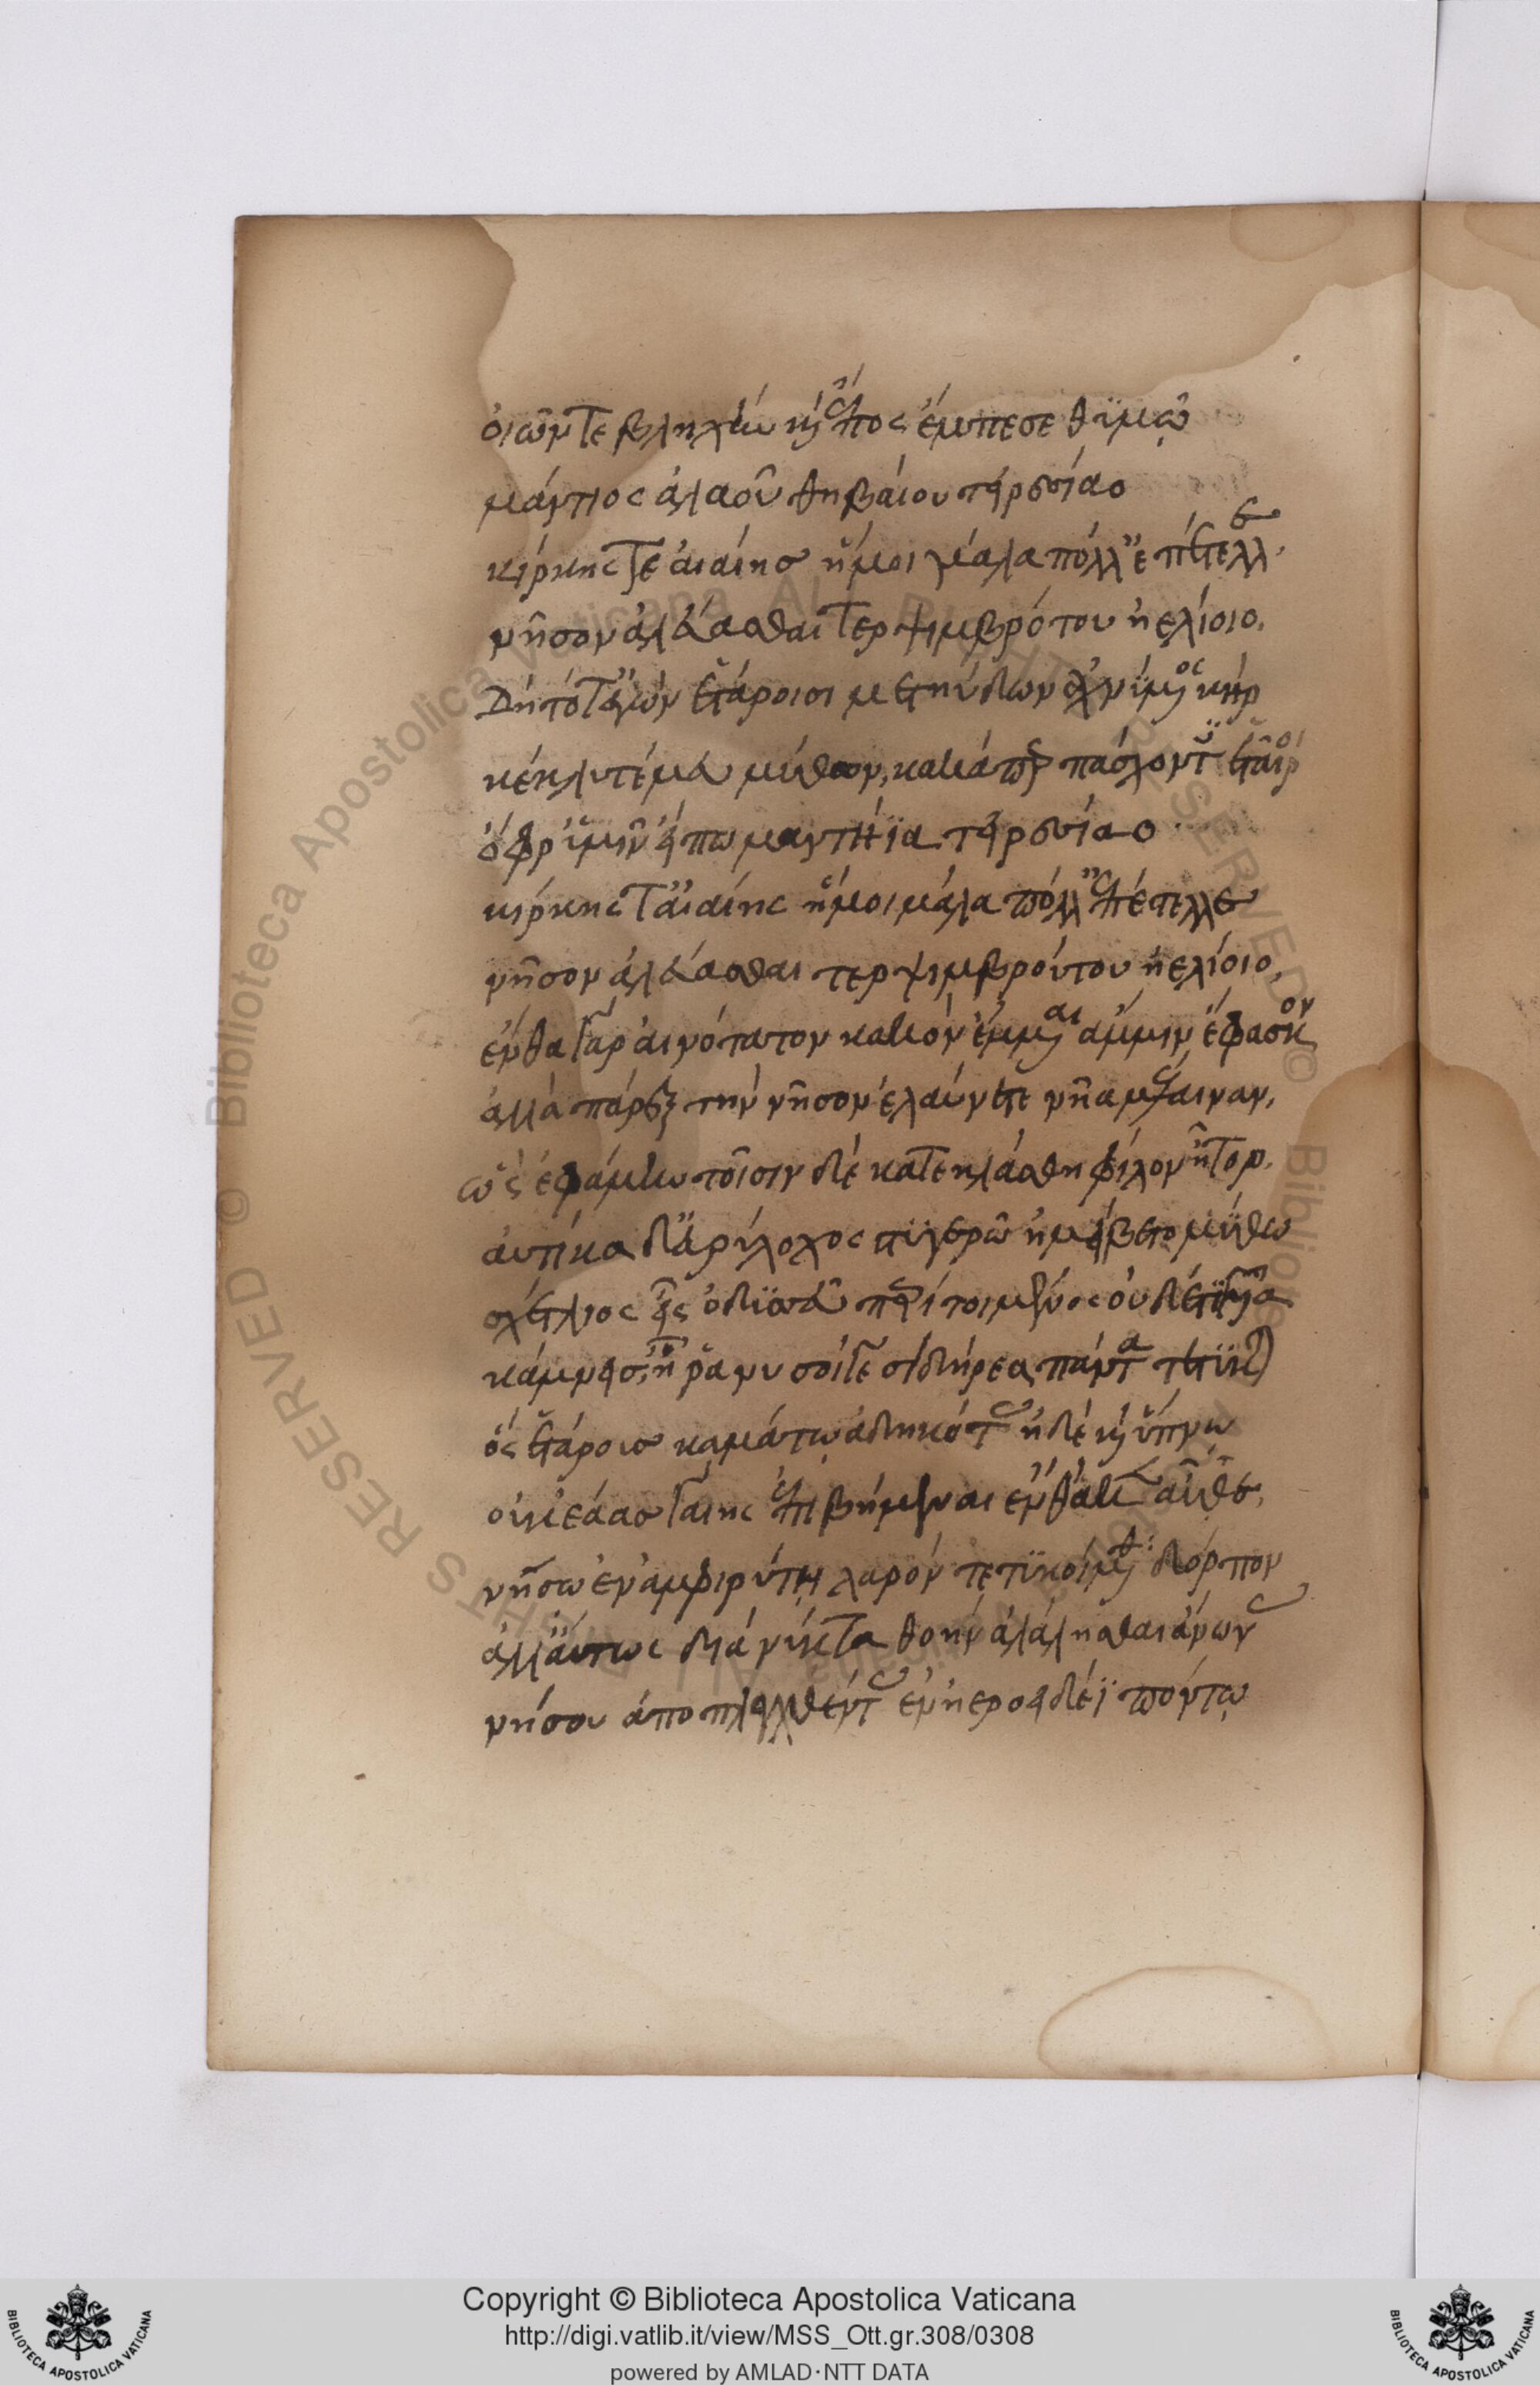 οἰῶν τε βληχήν καί ἔπος ἔμπεσε θυμῷ
μάντιος ἀλαοῦ θηβαίου τειρεσίαο
κίρκης τε αἰαίης ἥ μοι μάλα πόλλ' ἐπέτελλε
νῆσον ἀλεύασθαι τερψιμβρότου ἠελίοιο.
Δή τότ' ἐγών ἑτάροισι μετηύδων ἀχνύμενος κῆρ
κέκλυτέ μευ μύθων, κακά περ πάσχοντες ἑταῖροι
ὄφρ' ὑμῖν εἴπω μαντήϊα τειρεσίαο
κίρκης τ' αἰαίης ἥ μοι μάλα πόλλ' ἐπέτελλε
νῆσον ἀλεύασθαι τερψιμβρότου ἠελίοιο,
ἔνθα γάρ αἰνότατον κακόν ἔμμεναι ἄμμιν ἔφασκον
ἀλλά πάρεξ τήν νῆσον ἐλαύνετε νῆα μέλαιναν,
ὥς ἐφάμην τοῖσιν δέ κατεκλάσθη φίλον ἦτορ.
αὐτίκα δ' εὐρύλοχος στυγερῷ ἠμείβετο μύθω
σχέτλιος εἶς ὀδυσεῦ περί τοι μένος οὐδέ τι γυῖα
κάμνεις, ἦ ῥά νυ σοί γε σιδήρεα πάντα τέτυκται
ὅς ἑτάρους καμάτῳ ἀδηκότας ἠδέ καί ὕπνῳ
οὐκ ἐάας γαίης ἐπιβήμεναι ἔνθά κεν αὖτε,
νήσω ἐν ἀμφιρύτη λαρόν τετυκοίμεθα δόρπον
ἀλλ' αὔτως διά νύκτα θοήν ἀλάλησθαι ἄνωγας
νήσου ἀποπλαγχθέντας ἐν ἠεροειδέϊ πόντῳ
Copyright © Biblioteca Apostolica Vaticana
http://digi.vatlib.it/view/MSS_Ott.gr.308/0308
powered by AMLAD·NTT DATA